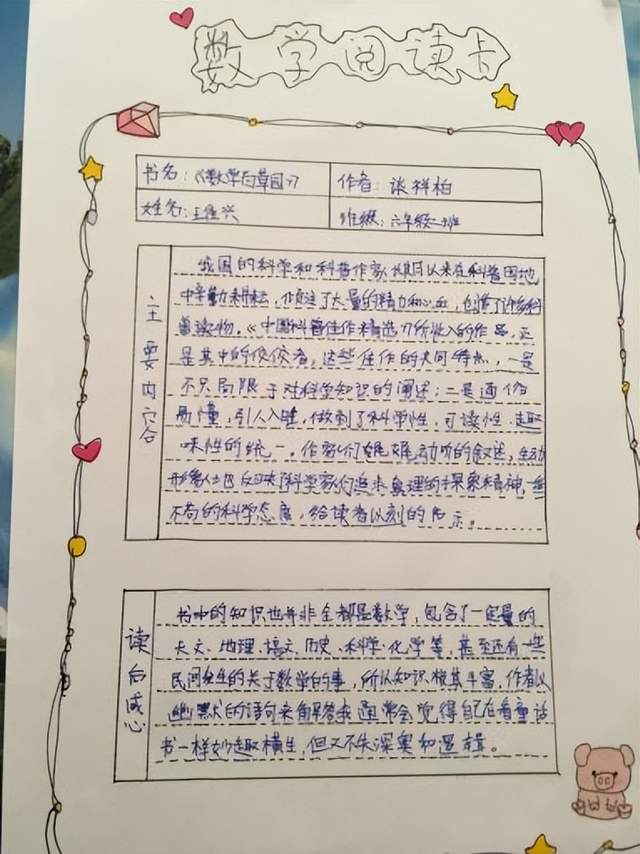 数学阅读卡
书名:《数学百草园》 作者:谈祥柏
姓名:王 兴 班级:六年级二班
主要内容
我国的科学和科普作家长期以来在科普园地
中辛勤耕耘,倾注了大量的精力和心血,创作了许多科
普读物。《中国科普佳作精选》所收入的作品,正
是其中的佼佼者,这些佳作的共同特点,一是
不只局限于对科学知识的阐述;二是通俗
易懂,引人入胜,做到了科学性、可读性、趣
味性的统一。作家们娓娓动听的叙述,生动
形象地反映了科学家们追求真理的探索精神,一丝
不苟的科学态度,给读者以刻的启示。
读后感心
书中的知识也并非全都是数学,包含了一定量的
天文、地理、语文、历史、科学、化学等,甚至还有一些
民间发生的关于数学的事,所以知识极其丰富,作者以
幽默的语句来解答我通常会觉得自己在看童话
书一样妙趣横生,但又不失深奥和逻辑。